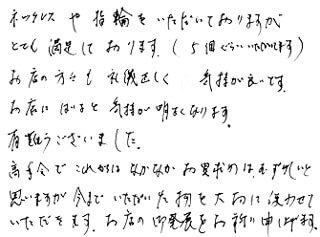 ネックレスや指輪をいただいておりますが
とても満足しております。(5個ぐらいいただいてます)
お店の方々も礼儀正しく 気持が良いです。
お店にはいると気持が明るくなります。
有難うございました。
高年令でこれからはなかなかお買求めはむずかしいと
思いますが今までいただいた物を大切に使わせて
いただきます。お店の御発展をお祈り申し上げます。